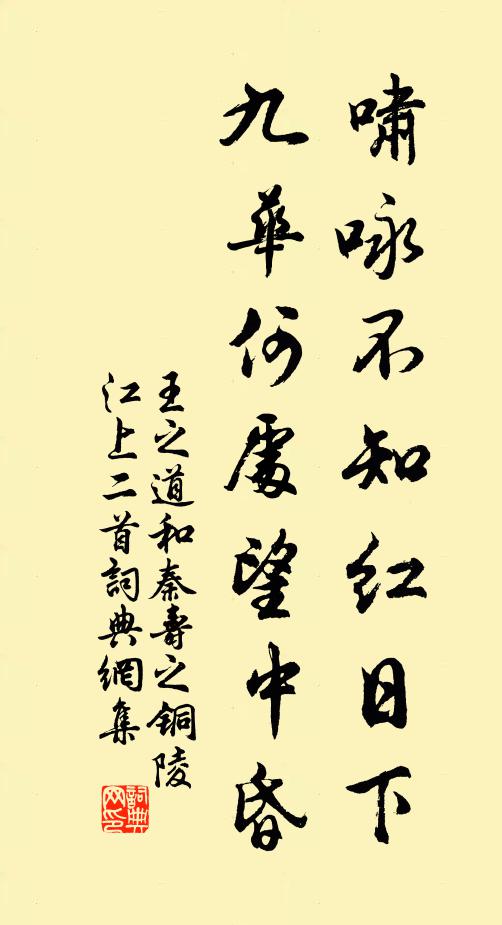 啸咏不知红日下
九華何處望中昏
王之道和秦壽之铜陵
江上二首詞典網集
詞典网印